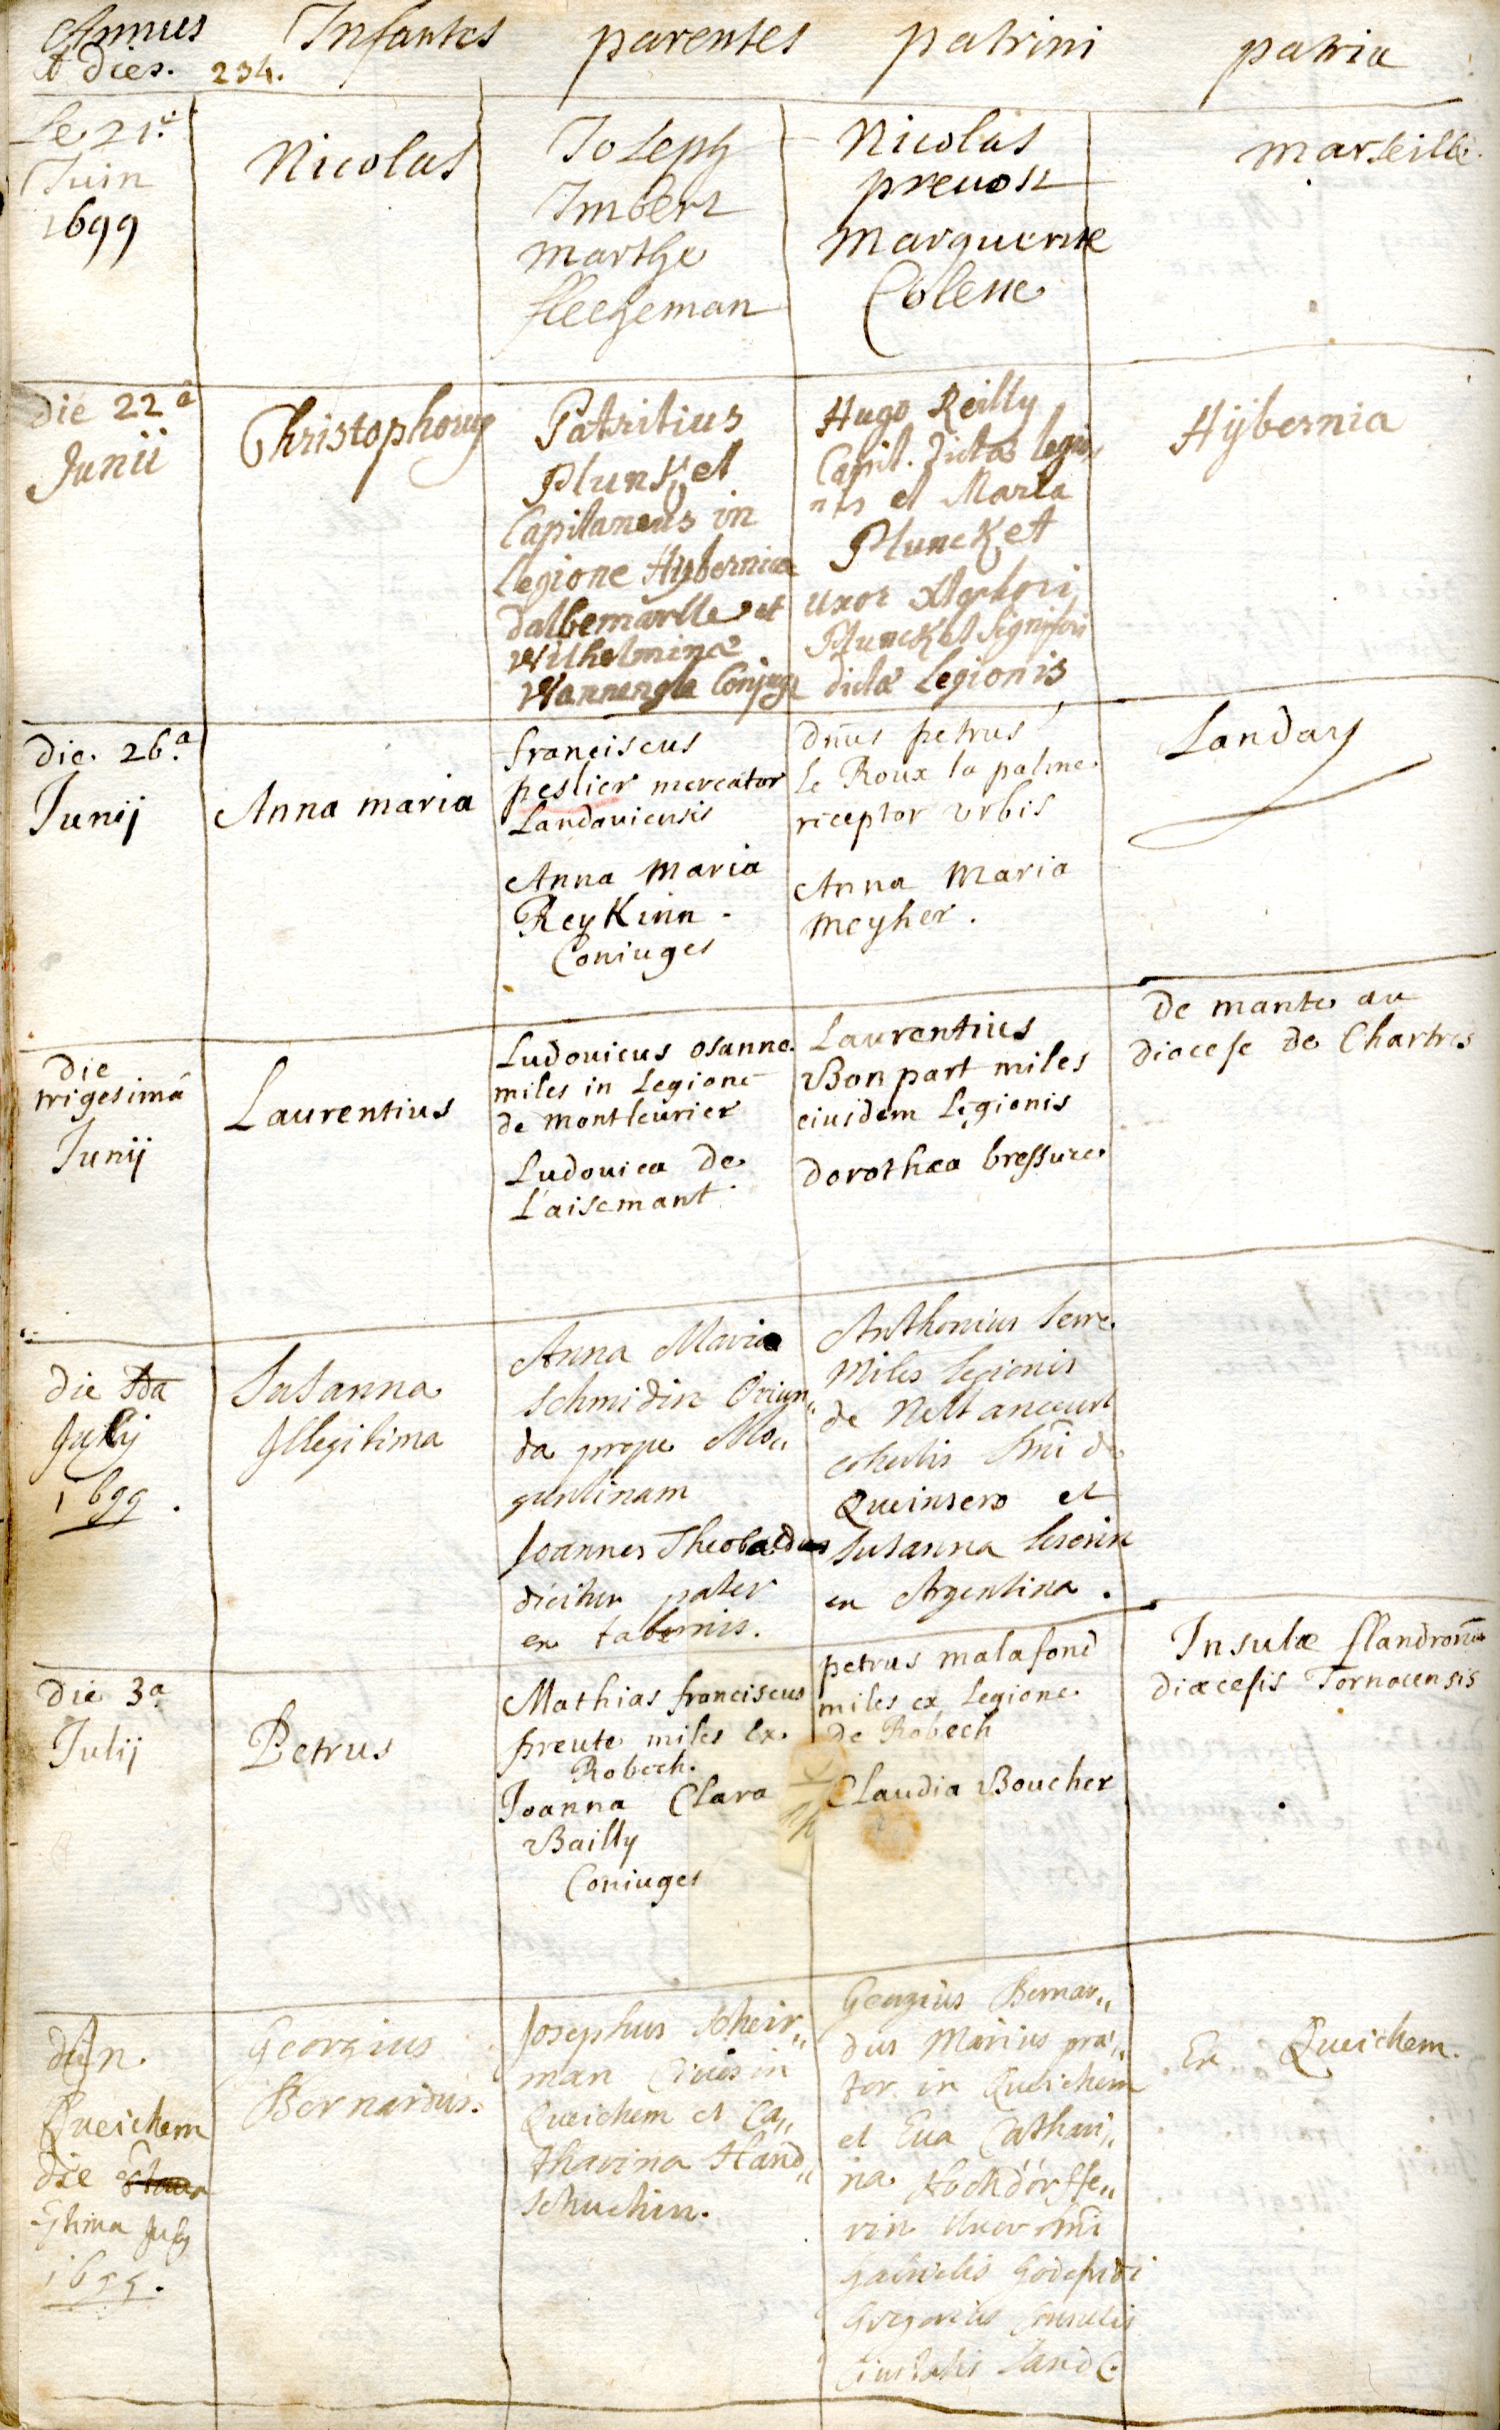 Annus Infantes parentes patrini patria
et dies. 234.
Le 21.e
Juin
1699
Nicolas
Joseph
Imbert
marthe
fleegeman
Nicolas
preuost
marguerite
Colene
marseille.
die 22a
Junii
Christophorus
Patritius
Plunket
Capitaneus in
Legione Hybernica
dalbemarlle et
Wilhelmina
Conjuges
Hugo Reilly
Capit. dictae legio
nis et Maria
Pluncket
uxor
Pluncket signiferi
dictae Legionis
Hijbernia
Die. 26.a
Junij
Anna maria
franciscus
peslier mercator
Landauiensis
Anna Maria
ReyKinn -
Coniuges
Dnus petrus
le Roux la palme
receptor Vrbis
Anna Maria
meyher.
Landau
die
trigesimâ
Junij
Laurentius
Ludouicus osanne
miles in Legione
de montleurier
Ludouica de
L'aisemant.
Laurentius
Bonpart miles
eiusdem Legionis
dorothaea bressure
De mante au
diocese de Chartres
die
July
1699.
Susanna
Illegitima
Anna Maria
Schmidin Oriun„
da prope Mo„
guntinam
Joannes Theobaldus
dicitur pater
ex tabernis.
Anthonius Serre
Miles legionis
de Nettancourt
cohortis Dni de
Queinsero et
Susanna
ex Argentina.
die 3a
Julij
Petrus
Mathias franciscus
preute miles ex
Robech.
Joanna Clara
Bailly
Coniuges
petrus malafond
miles ex Legione
de Robech
Claudia Boucher
Insulae flandrorum
diœcesis Tornacensis
Queichem
die
July
1699.
Georgius
Bernardus.
Josephus Scheir„
man Ciuis in
Queichem et Ca„
tharina Hand„
schuchin.
Georgius Bernar„
dus Marius prae„
tor in Queichem
et Eua Cathari„
na Hochdörffe„
rin uxor Dni
gabrielis Godefridi
Gregorilis Consulis
Ciuitatis Land.
Ex Queichem.